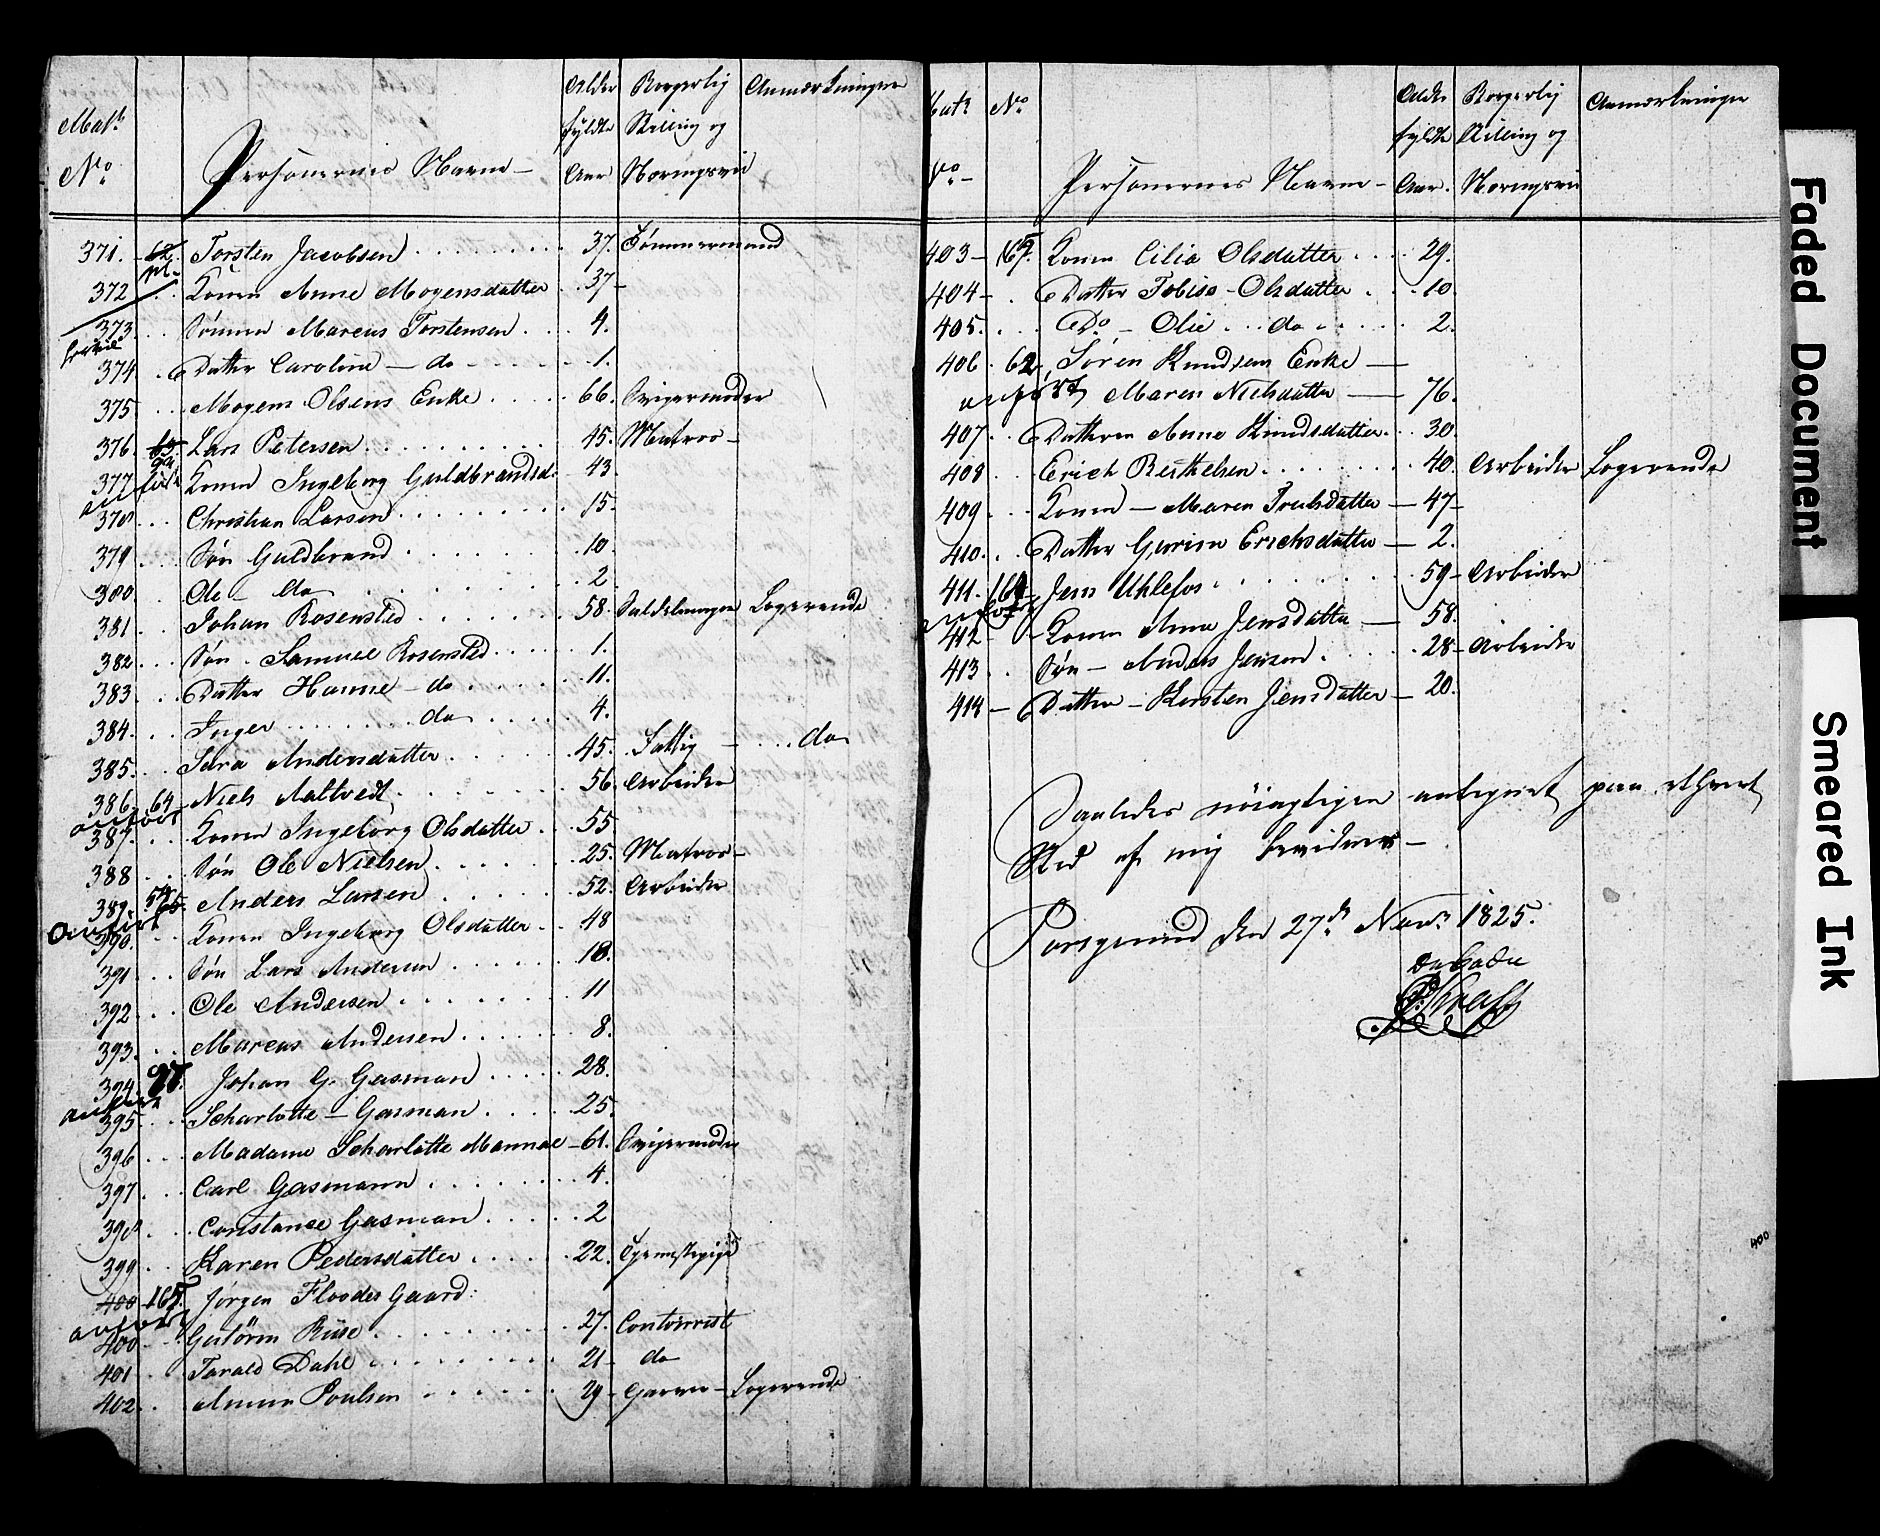 Matr. No. Personernes Navne - Alder fyldte Aar Borgerlig Stilling og Næringsvei Anmærkninger
371. 62. Torsten Jacobsen 37. Tømmermand
372 Konen Anne Mogensdatter 37-
373. Sønnen Marcus Torstensen 4.
374. Datter Caroline - do 1.
375 Mogens Olsens Enke 66. Svigermoder
376. 63. Lars Petersen 45. Matros-
377 Konen Ingeborg Guldbrandsd. 43
378 Christian Larsen 15
379 Søn Guldbrand 10.
380. Ole - do 2
381 Johan Rosensted 58. Logerende
382 Søn - Samuel Rosensted 1.
383 Datter Hanne - do 11.
384. Inger do 4.
385. Sara Andersdatter 45. Fattig - do
386. 64 Niels Aaltvedt 56. Arbeider
anført
387. Konen Ingeborg Olsdatter 55
388 Søn Ole Nielsen 25. Matros-
389. 65. Anders Larsen 52. Arbeider
anført
390. Konen Ingeborg Olsdatter 48
391 Søn Lars Andersen 18.
392 Ole Andersen 11
393. Marcus Andersen 8.
394 Johan G. Gasman 28.
anført
395 Scharlotte - Gasman 25.
396 Madame Scharlotte 61. Svigermoder
397 Carl Gasmann 4.
398 Constance Gasman 2
399 Karen Pedersdatter 22. Tjenestepige
400 165. Jørgen Flodes Gaard:
anført
400 Riise 27. Contoirist
401 Tarald Dahl 21 do
402 Poulsen 29 Garver - Logerende
Matr. No. - No. Personernes Navne - Alder fyldte Aar. Borgerlig Stilling og Næringsvei Anmærkninger
403 - Konen Cilia Olsdatter 29.
404 - Datter Tobise - Olsdatter 10
405. Do - Olie do 2.
406 62 Søren Knudsens Enke -
anført Maren Nielsdatter - 76.
407 Datteren Anne Knudsdatter. 30.
408 Erich Berthelsen 40. Arbeider Logerende
409 Konen - Maren Trulsdatter - 47-
410. Datter Gurine Erichsdatter - 2.
411. 164 Jens Uhlefos 59- Arbeider
anført
412 - Konen Anne Jensdatter - 58.
413 Søn - Anders Jensen. 28- Arbeider
414 - Datter - Kirsten Jensdatter - 20.
Saaledes nøiagtigen antegnet paa ethvert
Sted af mig bevidnes -
Porsgrund den 27de Novr. 1825.
400
Faded Document
Smeared Ink